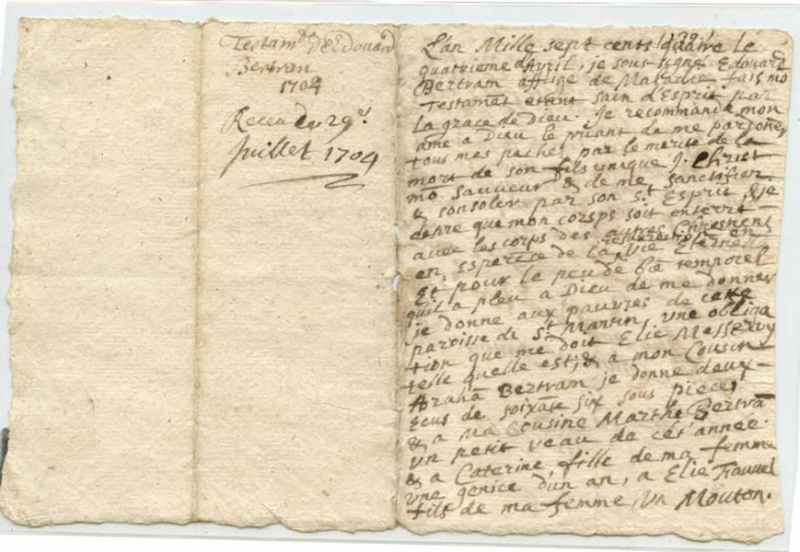 Testam.t d'Edouard
Bertran
1704
Receu Le 29e
Juillet 1704
L'an Mille sept cents quatre le
quatrieme d'Avril, je sous signe Edouard
Bertram afflige de Maladie fais mō
Testamēt etant sain d'Esprit par
la grace de Dieu. Je recommande mon
ame a Dieu le priant de me pardoner
tous mes pechez par le merite de la
mort de son fils unique J. Christ
mō sauveur & de me sanctifier
& consoler par son St Esprit, & je
donne que mon corsps soit enterré
avec les corps des autres Chrestiens
en Esperēce de la resurrection en Vie Eternelle
Et pour le peu de biē temporel
qu'il a pleu a Dieu de me donner
je donne aux pauvres de cette
paroisse de St Martin, une obliga
tion que me doit Elie Messervy
telle quelle est; & a mon Cousin
Abrahā Bertram je donne deux
Ecus de soixāte six sous piece;
& a Ma Cousine Marthe Bertrā
un petit veau da cet année.
& a Caterine, fille de ma femme
une genice d'un an, a Elie
fils de ma femme, un Mouton.